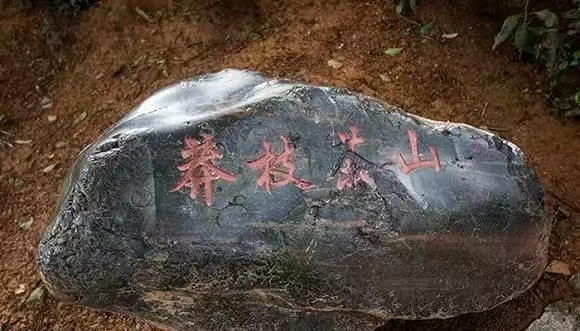 莽枝茶山